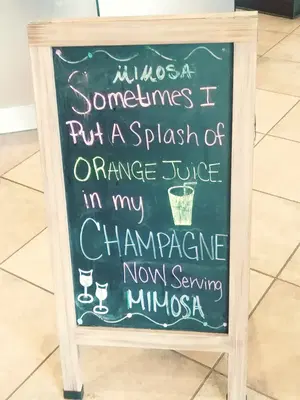 MIMOSA
Sometimes I
Put A Splash of
ORANGE JUICE
in my
CHAMPAGNE
NOW Serving
MIMOSA